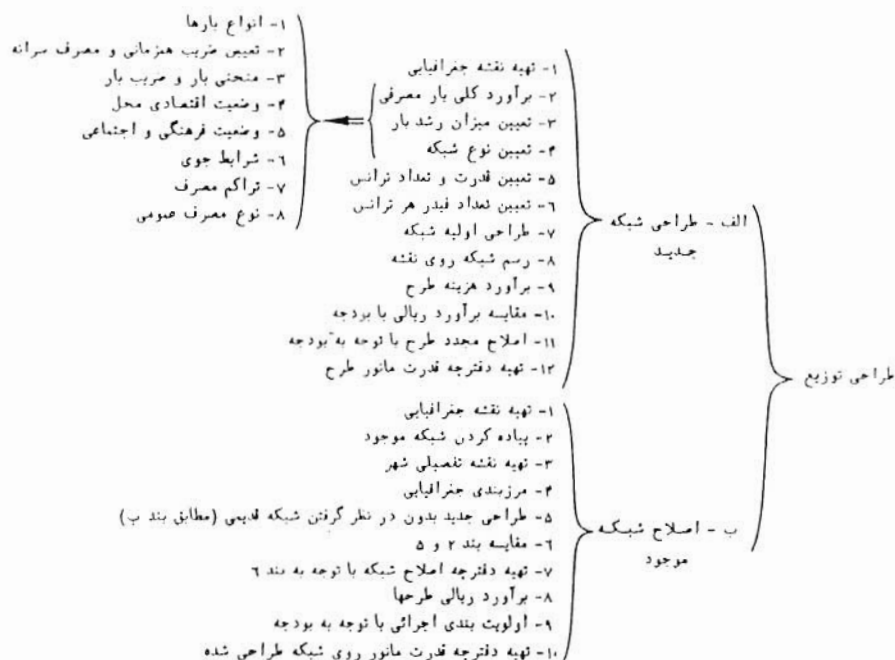 طراحی توزیع
الف - طراحی شبکه
جدید
۱- تهیه نقشه جغرافیایی
۲- برآورد کلی بار مصرفی
۳- تعیین میزان رشد بار
۴- تعیین نوع شبکه
۵- تعیین قدرت و تعداد ترانس
۶- تعیین تعداد فیدر هر ترانس
۷- طراحی اولیه شبکه
۸- رسم شبکه روی نقشه
۹- برآورد هزینه طرح
۱۰- مقایسه برآورد ریالی با بودجه
۱۱- اصلاح مجدد طرح با توجه به بودجه
۱۲- تهیه دفترچه قدرت مانور طرح
۱- انواع بارها
۲- تعیین ضریب همزمانی و مصرف سرانه
۳- منحنی بار و ضریب بار
۴- وضعیت اقتصادی محل
۵- وضعیت فرهنگی و اجتماعی
۶- شرایط جوی
۷- تراکم مصرف
۸- نوع مصرف عمومی
ب - اصلاح شبکه
موجود
۱- تهیه نقشه جغرافیایی
۲- پیاده کردن شبکه موجود
۳- تهیه نقشه تفصیلی شهر
۴- مرزبندی جغرافیایی
۵- طراحی جدید بدون در نظر گرفتن شبکه قدیمی (مطابق بند ب)
۶- مقایسه بند ۲ و ۵
۷- تهیه دفترچه اصلاح شبکه با توجه به بند ۶
۸- برآورد ریالی طرحها
۹- اولویت بندی اجرائی با توجه به بودجه
۱۰- تهیه دفترچه قدرت مانور روی شبکه طراحی شده